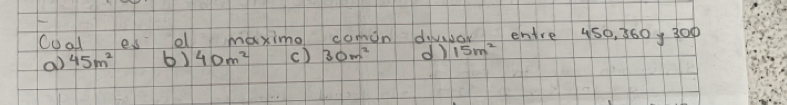 Cual es el maximo común divisor entre 450,360 y 300
a) 45m² b) 40m² c) 30m² d) 15m²